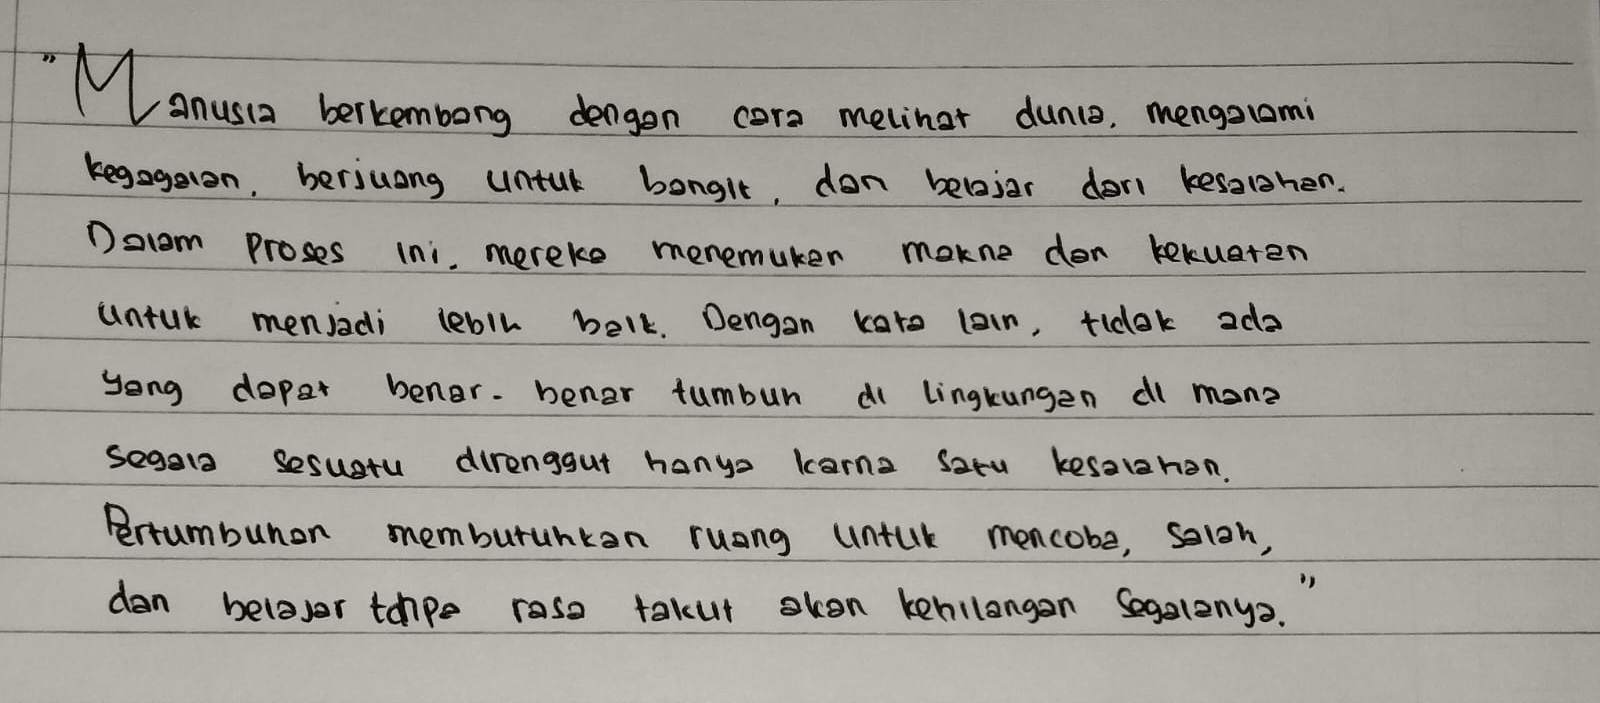 "Manusia berkembang dengan cara melihat dunia, mengalami
kegagalan, berjuang untuk bangit, dan belajar dari kesalahan.
Dalam proses ini, mereka menemukan makna dan kekuatan
untuk menjadi lebih baik. Dengan kata lain, tidak ada
yang dapat benar-benar tumbuh di lingkungan di mana
segala sesuatu direnggut hanya karna satu kesalahan.
Pertumbuhan membutuhkan ruang untuk mencoba, salah,
dan belajar tanpa rasa takut akan kehilangan segalanya."